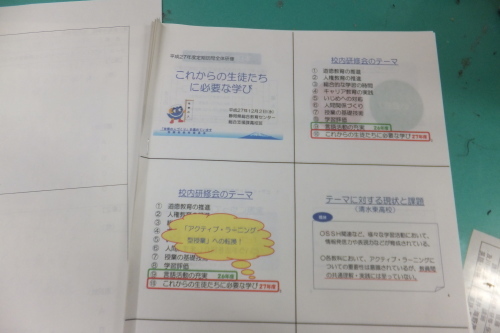 平成27年度定期訪問全体研修
これからの生徒たち
に必要な学び
平成27年12月2日(水)
静岡県総合教育センター
総合支援課高校班
校内研修会のテーマ
① 道徳教育の推進
② 人権教育の推進
③ 総合的な学習の時間
④ キャリア教育の実践
⑤ いじめへの対応
⑥ 人間関係づくり
⑦ 授業の基礎技術
⑧ 学習評価
⑨ 言語活動の充実 26年度
⑩ これからの生徒たちに必要な学び 27年度
校内研修会のテーマ
① 道徳教育の推進
② 人権教育の推進
③ 総
④ キ
⑤ い
⑥ 人間
⑦ 授業の基礎
⑧ 学習評価
⑨ 言語活動の充実 26年度
⑩ これからの生徒たちに必要な学び 27年度
「アクティブ・ラーニング
型授業」への転換!
テーマに対する現状と課題
(清水東高校)
現状
○SSH関連など、様々な学習活動において、
情報発信力や表現力などが育成されている。
○各教科において、アクティブ・ラーニングに
ついての重要性は意識されているが、教員間
の共通理解・実践には至っていない。